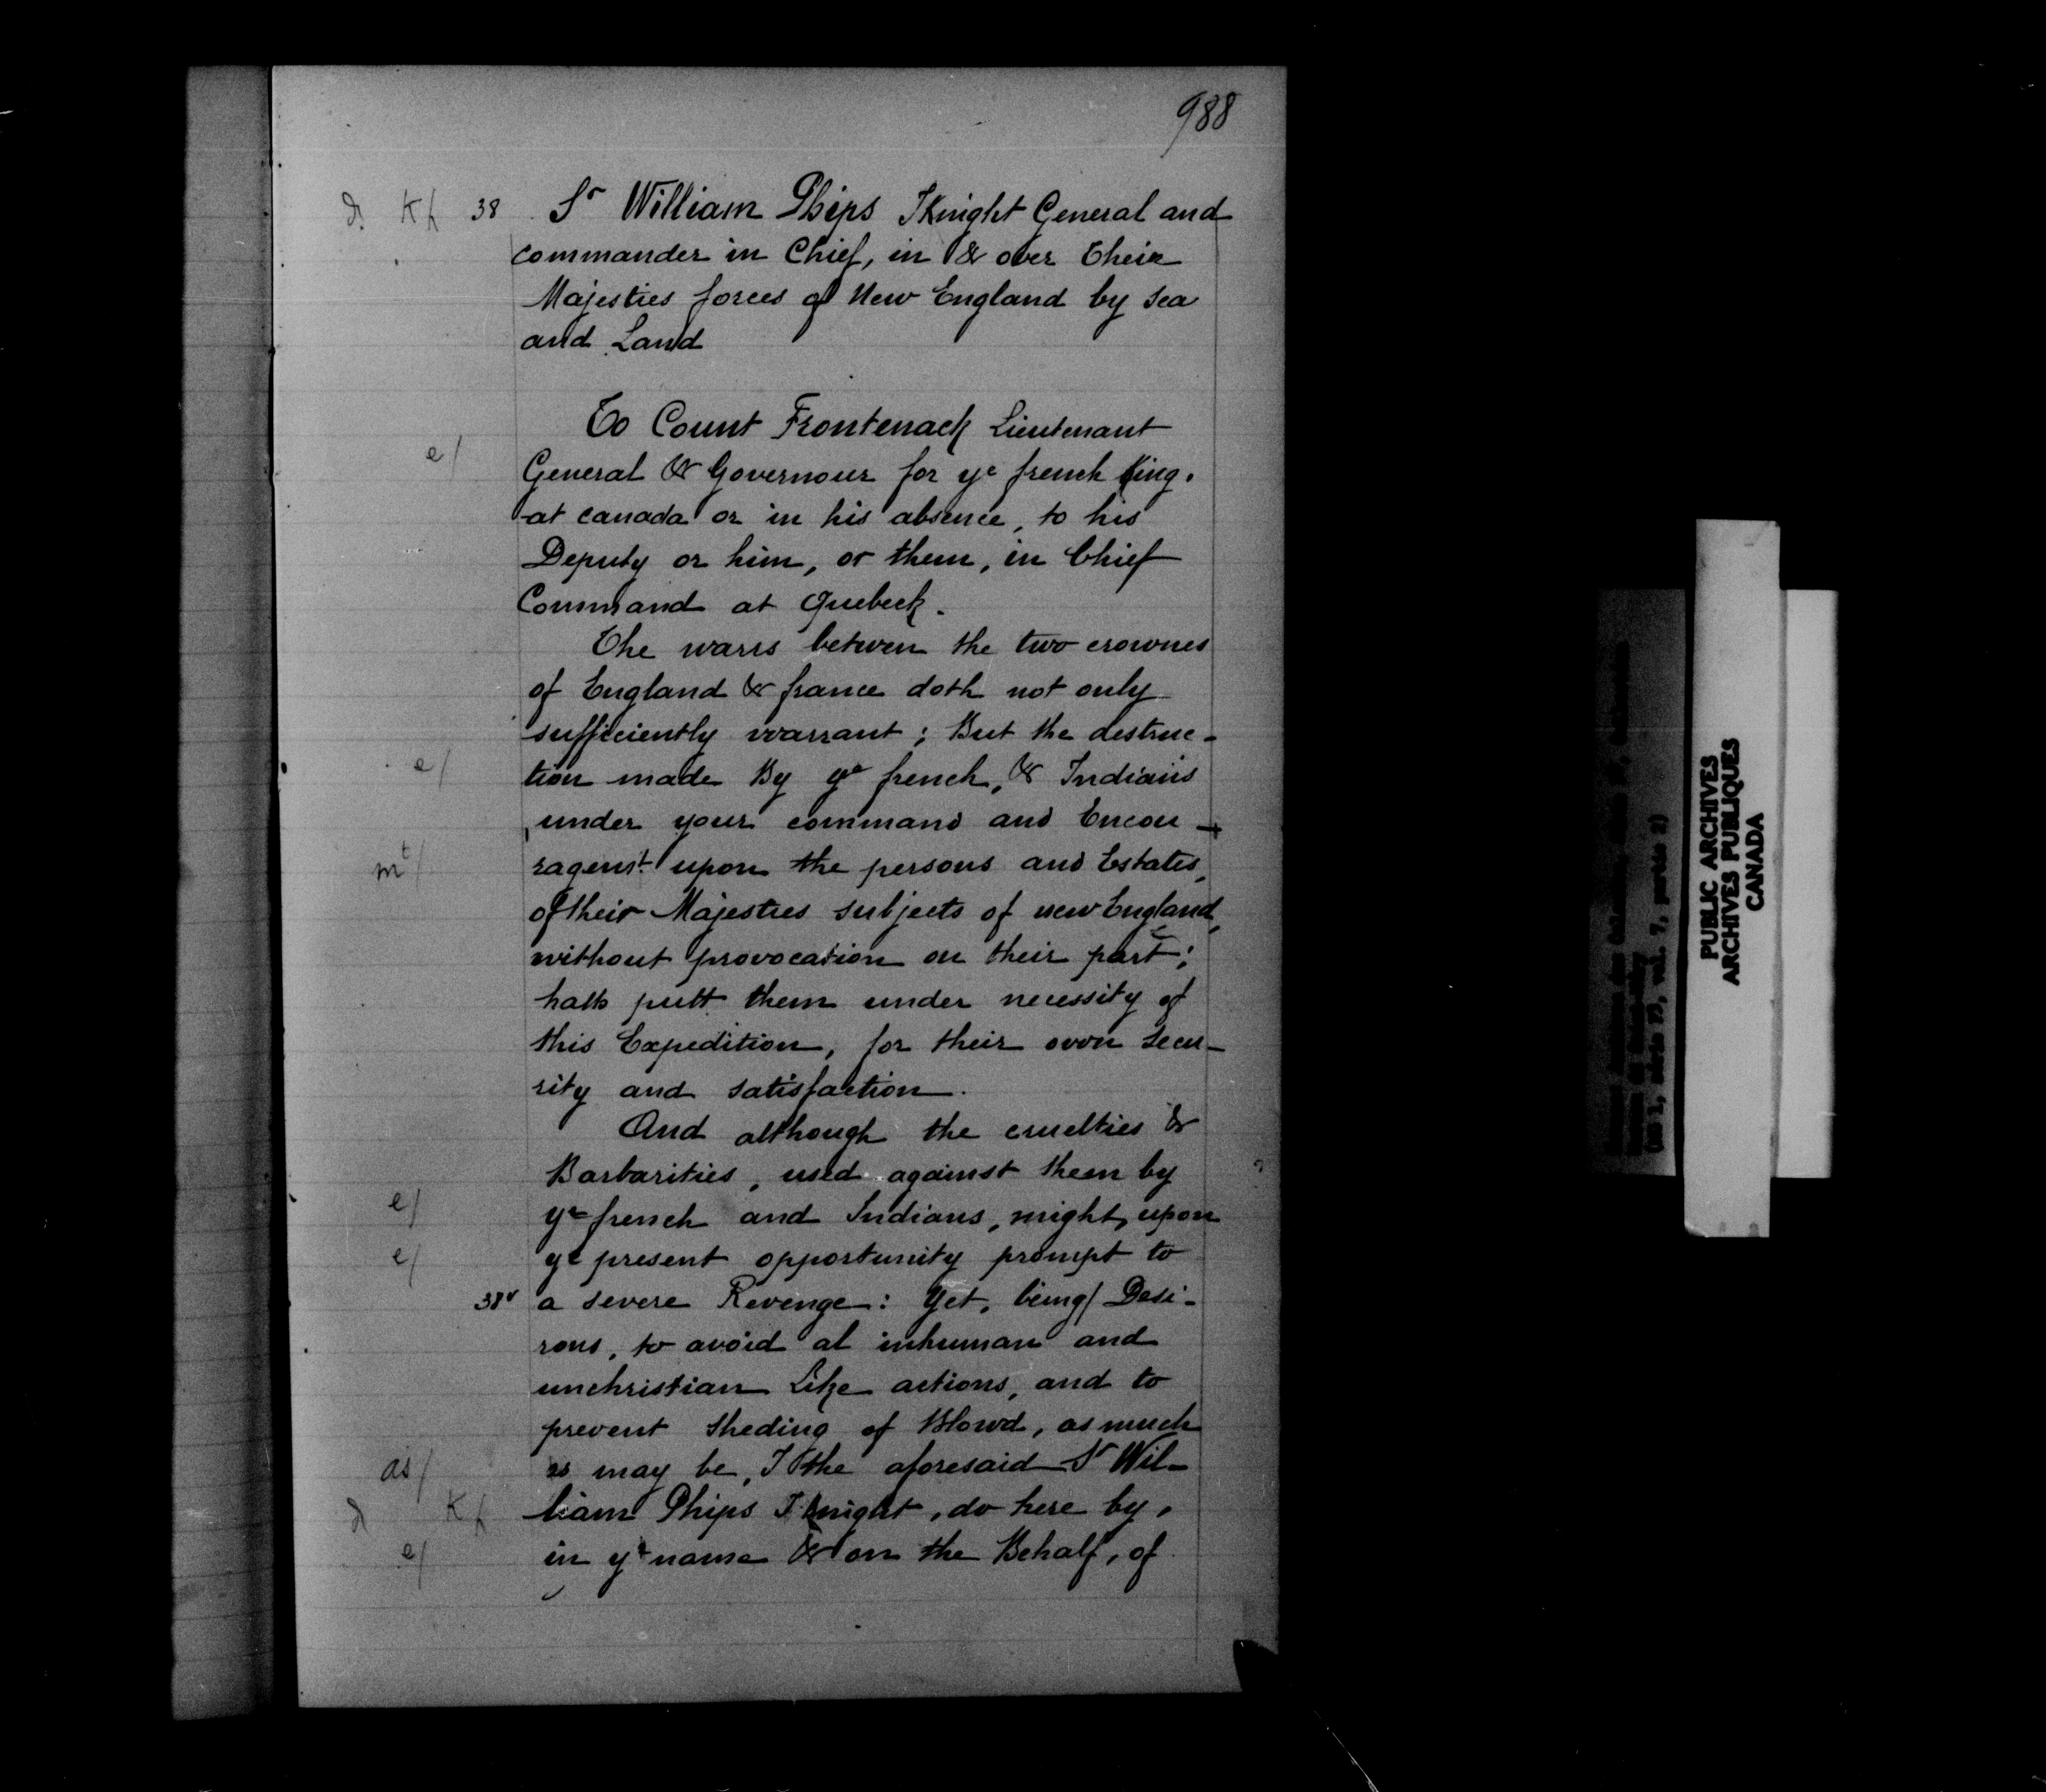 988
38 Sr William Phips Knight General and
commander in Chief, in & over Their
Majesties forces of New England by Sea
and Land
To Count Frontenack Lieutenant
e/
General & Governour for ye french King.
at canada or in his absence, to his
Deputy or him, or them, in Chief
Command at Quebeck.
The warrs betwen the two crownes
of England & france doth not only
sufficiently warrant ; But the destruc-
e/ tion made By ye french, & Indians
under your command and Encou-
mt/ ragemt upon the persons and Estates,
of their Majesties subjects of new England,
without provocation on their part;
hath putt them under necessity of
this Expedition, for their own Secu-
rity and satisfaction.
And although the cruelties &
Barbarities, used against them by
e/ ye french and Indians, might, upon
e/ ye present opportunity prompt to
38v a severe Revenge: Yet, being/ Desi-
rous, to avoid al inhuman and
unchristian Like actions, and to
prevent Sheding of Blowd, as much
as/ as may be, I the aforesaid Sr Wil-
liam Phips Knight, do here by,
e/ in ye name & on the Behalf, of
PUBLIC ARCHIVES
ARCHIVES PUBLIQUES
CANADA